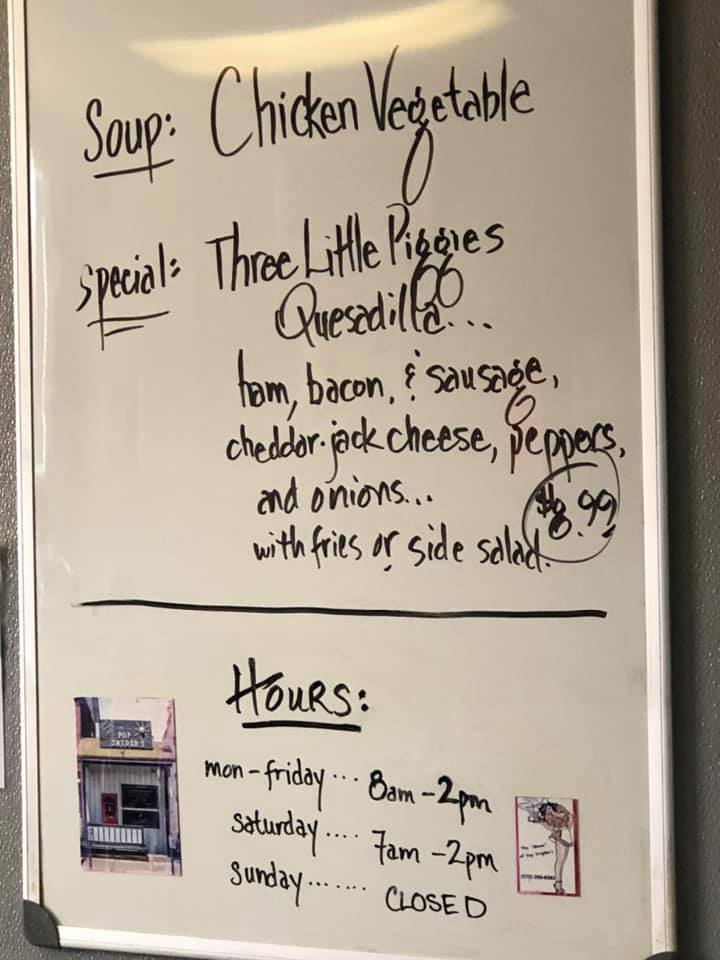 Soup: Chicken Vegetable
Special: Three Little Piggies
Quesadilla...
ham, bacon, & sausage,
cheddar-jack cheese, peppers,
and onions...
$8.99
with fries or side salad.
HOURS:
mon-friday ... 8am-2pm
saturday .... 7am-2pm
Sunday....... CLOSED
POP